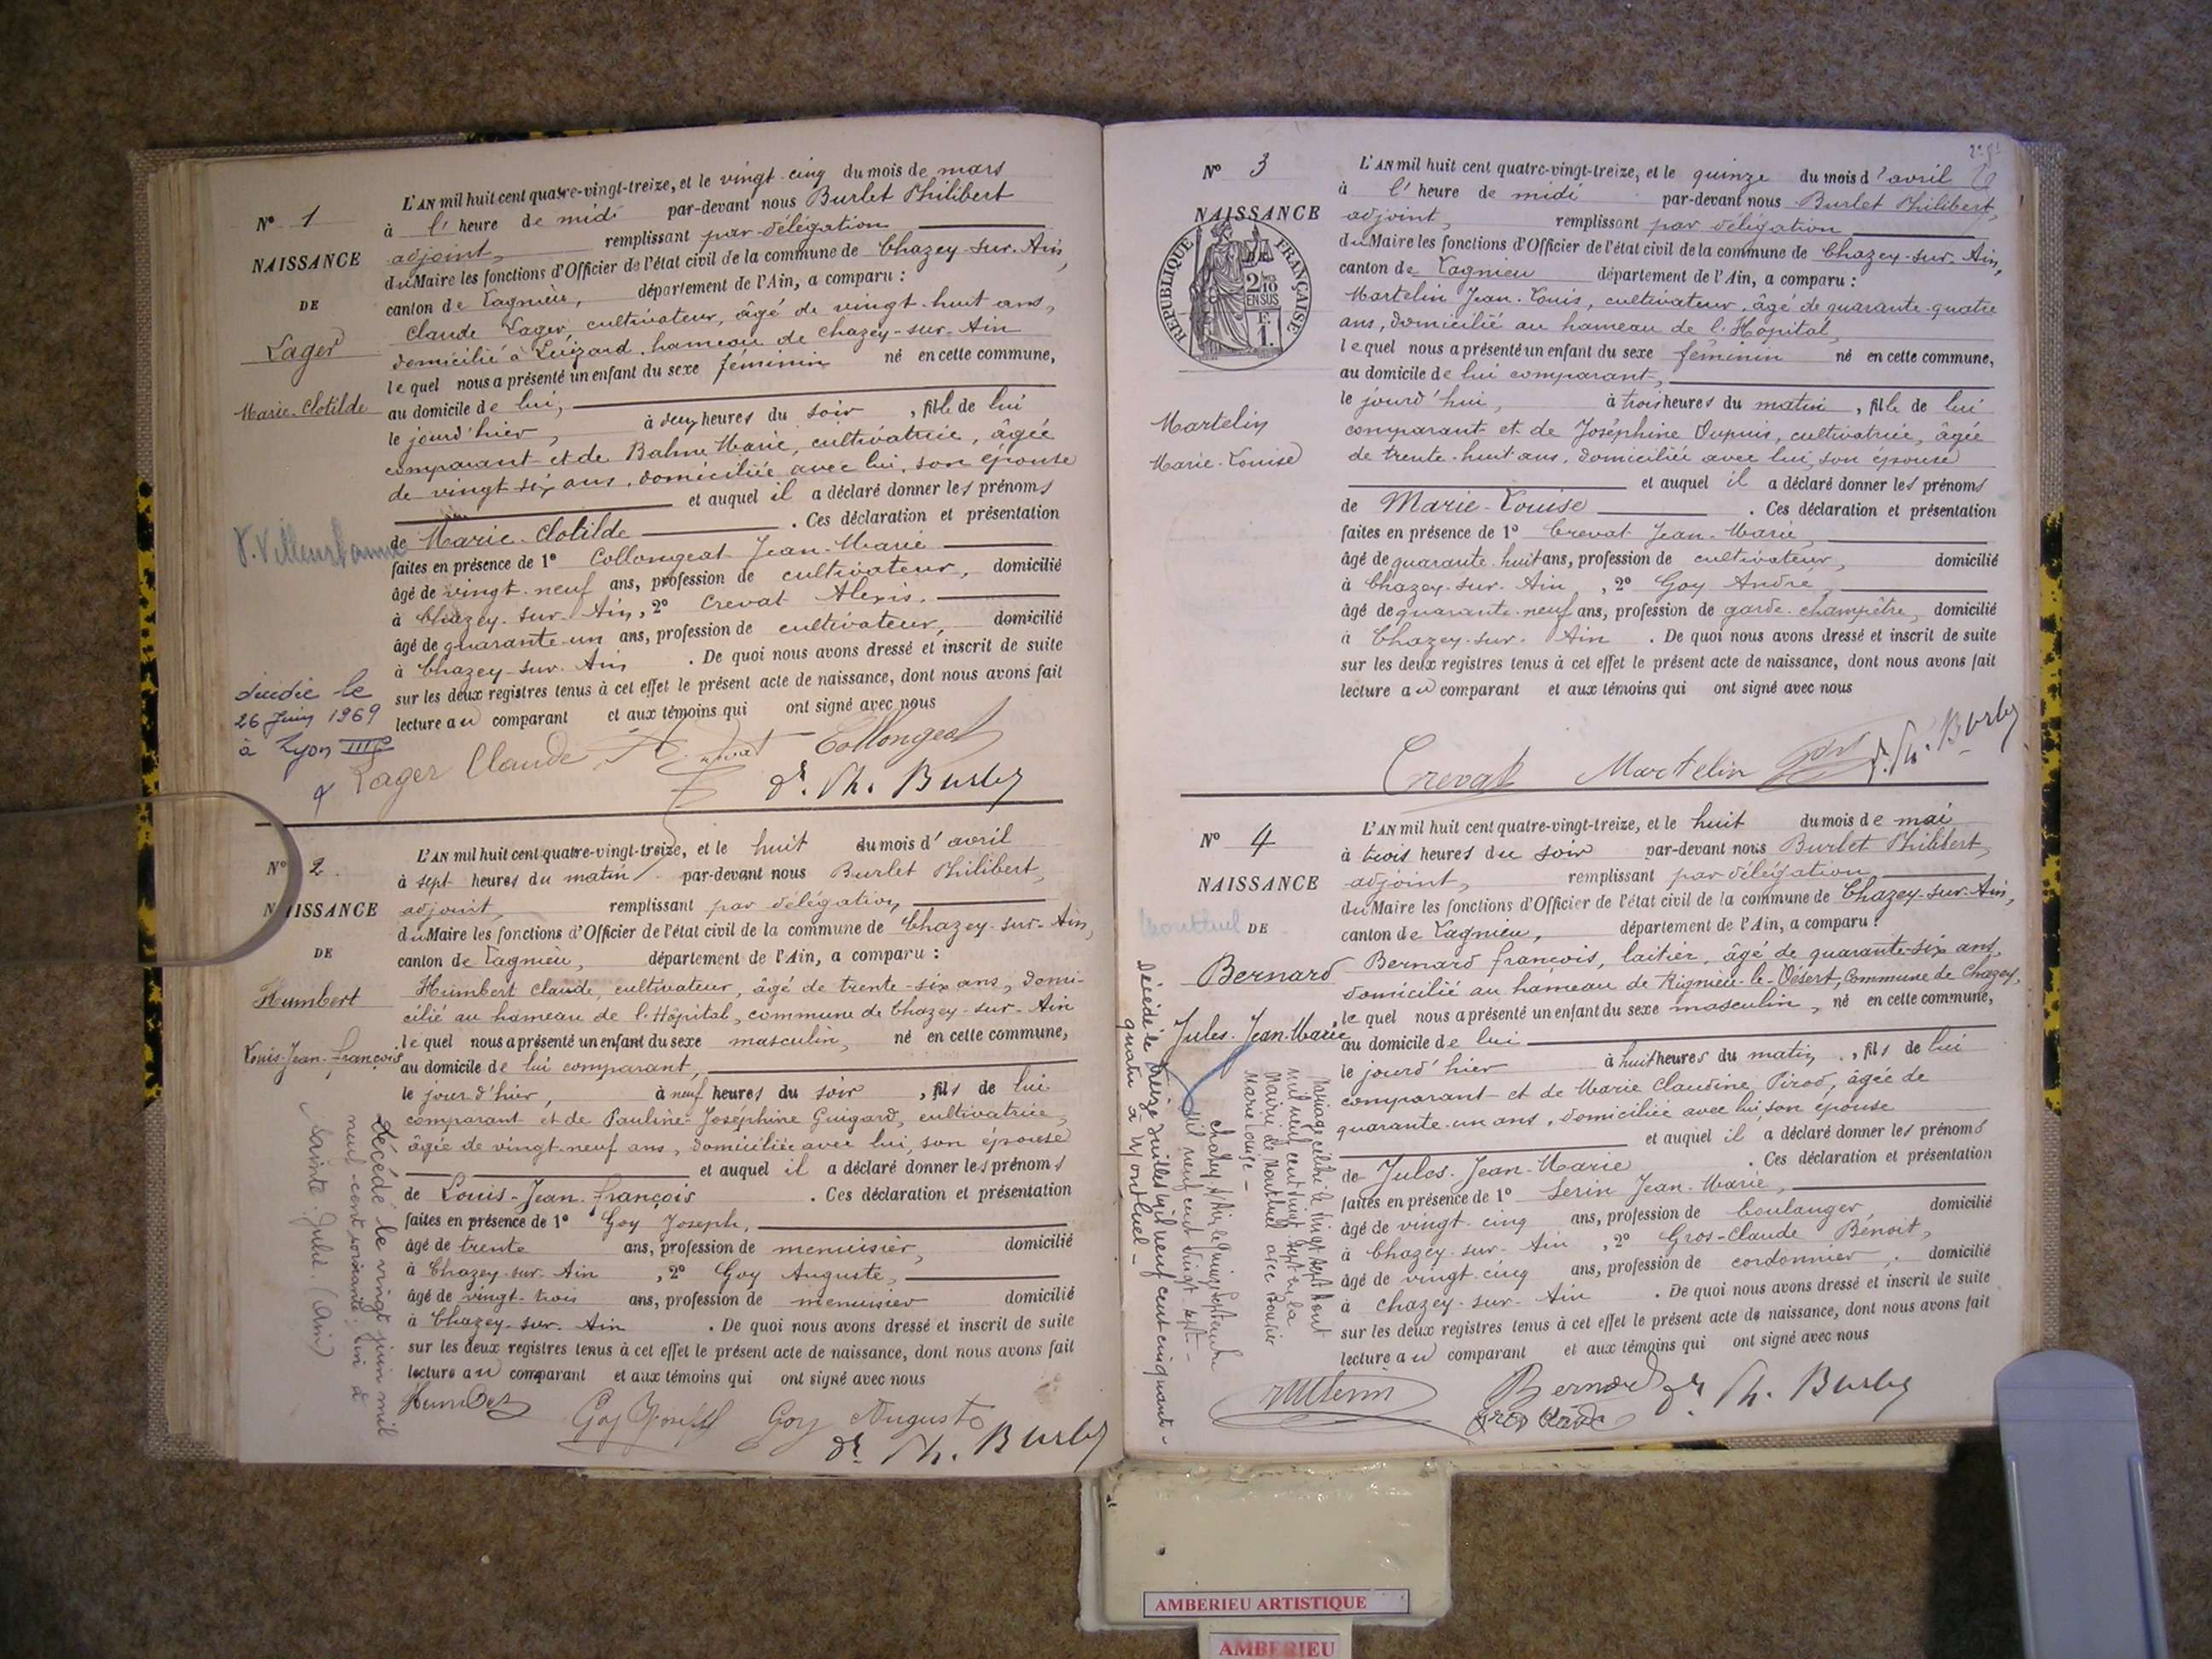 N° 1
NAISSANCE
DE
Lager
Marie-Clotilde
décédée le
26 Juin 1969
à Lyon IIIe
L'AN mil huit cent quatre-vingt-treize, et le vingt-cinq du mois de mars
à l' heure de midi par-devant nous Burlet Philibert
adjoint, remplissant par délégation
du Maire les fonctions d'Officier de l'état civil de la commune de Chazey-sur-Ain,
canton de Lagnieu, département de l'Ain, a comparu :
Claude Lager, cultivateur, âgé de vingt-huit ans,
domicilié à Luizard, hameau de Chazey-sur-Ain
lequel nous a présenté un enfant du sexe féminin né en cette commune,
au domicile de lui,
le jourd'hier, à deux heures du soir, fille de lui
comparant et de Bahne Marie, cultivatrice, âgée
de vingt-six ans, domiciliée avec lui, son épouse
et auquel il a déclaré donner les prénoms
de Marie-Clotilde . Ces déclaration et présentation
faites en présence de 1° Collongeat Jean-Marie
âgé de vingt-neuf ans, profession de cultivateur, domicilié
à Chazey-sur-Ain, 2° Crevat Alexis.
âgé de quarante-un ans, profession de cultivateur, domicilié
à Chazey-sur-Ain . De quoi nous avons dressé et inscrit de suite
sur les deux registres tenus à cet effet le présent acte de naissance, dont nous avons fait
lecture au comparant et aux témoins qui ont signé avec nous
Lager Claude Collongeat
dr. Ph. Burlet
N° 2
NAISSANCE
DE
Humbert
Louis-Jean-François
Décédé le vingt juin mil
neuf cent soixante
Sainte-Julie (Ain)
L'AN mil huit cent quatre-vingt-treize, et le huit du mois d'avril
à sept heures du matin par-devant nous Burlet Philibert,
adjoint, remplissant par délégation
du Maire les fonctions d'Officier de l'état civil de la commune de Chazey-sur-Ain,
canton de Lagnieu, département de l'Ain, a comparu :
Humbert Claude, cultivateur, âgé de trente-six ans, domi-
cilié au hameau de l'Hôpital, commune de Chazey-sur-Ain
lequel nous a présenté un enfant du sexe masculin, né en cette commune,
au domicile de lui comparant,
le jour d'hier, à neuf heures du soir, fils de lui
comparant et de Pauline-Joséphine Guigard, cultivatrice,
âgée de vingt-neuf ans, domiciliée avec lui, son épouse
et auquel il a déclaré donner les prénoms
de Louis-Jean-François . Ces déclaration et présentation
faites en présence de 1° Goy Joseph,
âgé de trente ans, profession de menuisier, domicilié
à Chazey-sur-Ain, 2° Goy Auguste,
âgé de vingt-trois ans, profession de menuisier domicilié
à Chazey-sur-Ain . De quoi nous avons dressé et inscrit de suite
sur les deux registres tenus à cet effet le présent acte de naissance, dont nous avons fait
lecture au comparant et aux témoins qui ont signé avec nous
Humbert Goy Joseph Goy Auguste
dr. Ph. Burlet
N° 3
NAISSANCE
RÉPUBLIQUE FRANÇAISE
2/10
EN SUS
F.
1.
Martelin
Marie-Louise
L'AN mil huit cent quatre-vingt-treize, et le quinze du mois d'avril
à l' heure de midi par-devant nous Burlet Philibert,
adjoint, remplissant par délégation
du Maire les fonctions d'Officier de l'état civil de la commune de Chazey-sur-Ain,
canton de Lagnieu département de l'Ain, a comparu :
Martelin Jean-Louis, cultivateur, âgé de quarante-quatre
ans, domicilié au hameau de l'Hopital,
lequel nous a présenté un enfant du sexe féminin né en cette commune,
au domicile de lui comparant,
le jourd'hui, à trois heures du matin, fille de lui
comparant et de Joséphine Dupuis, cultivatrice, âgée
de trente-huit ans, domiciliée avec lui, son épouse
et auquel il a déclaré donner les prénoms
de Marie-Louise . Ces déclaration et présentation
faites en présence de 1° Crevat Jean-Marie,
âgé de quarante-huit ans, profession de cultivateur, domicilié
à Chazey-sur-Ain, 2° Goy André,
âgé de quarante-neuf ans, profession de garde-champêtre, domicilié
à Chazey-sur-Ain . De quoi nous avons dressé et inscrit de suite
sur les deux registres tenus à cet effet le présent acte de naissance, dont nous avons fait
lecture au comparant et aux témoins qui ont signé avec nous
Crevat Martelin Goy dr. Ph. Burlet
N° 4
NAISSANCE
DE
Montluel
Bernard
Jules-Jean-Marie
Mariage célébré le vingt sept Août
mil neuf cent vingt sept en la
Mairie de Montluel avec
Marie Louise -
Chazey s/Ain le quinze Septembre
mil neuf cent vingt sept -
Décédé le treize Juillet mil neuf cent cinquante-
quatre à Montluel -
L'AN mil huit cent quatre-vingt-treize, et le huit du mois de mai
à trois heures du soir par-devant nous Burlet Philibert,
adjoint, remplissant par délégation
du Maire les fonctions d'Officier de l'état civil de la commune de Chazey-sur-Ain,
canton de Lagnieu, département de l'Ain, a comparu :
Bernard François, laitier, âgé de quarante-six ans,
domicilié au hameau de Rignieu-le-Désert, Commune de Chazey,
lequel nous a présenté un enfant du sexe masculin, né en cette commune,
au domicile de lui
le jourd'hier à huit heures du matin, fils de lui
comparant et de Marie Claudine Pirod, âgée de
quarante-un ans, domiciliée avec lui, son épouse
et auquel il a déclaré donner les prénoms
de Jules-Jean-Marie . Ces déclaration et présentation
faites en présence de 1° Serin Jean-Marie,
âgé de vingt-cinq ans, profession de boulanger, domicilié
à Chazey-sur-Ain, 2° Gros-Claude Benoit,
âgé de vingt-cinq ans, profession de cordonnier, domicilié
à Chazey-sur-Ain . De quoi nous avons dressé et inscrit de suite
sur les deux registres tenus à cet effet le présent acte de naissance, dont nous avons fait
lecture au comparant et aux témoins qui ont signé avec nous
Serin Bernard dr. Ph. Burlet
Gros Claude
AMBERIEU ARTISTIQUE
AMBERIEU